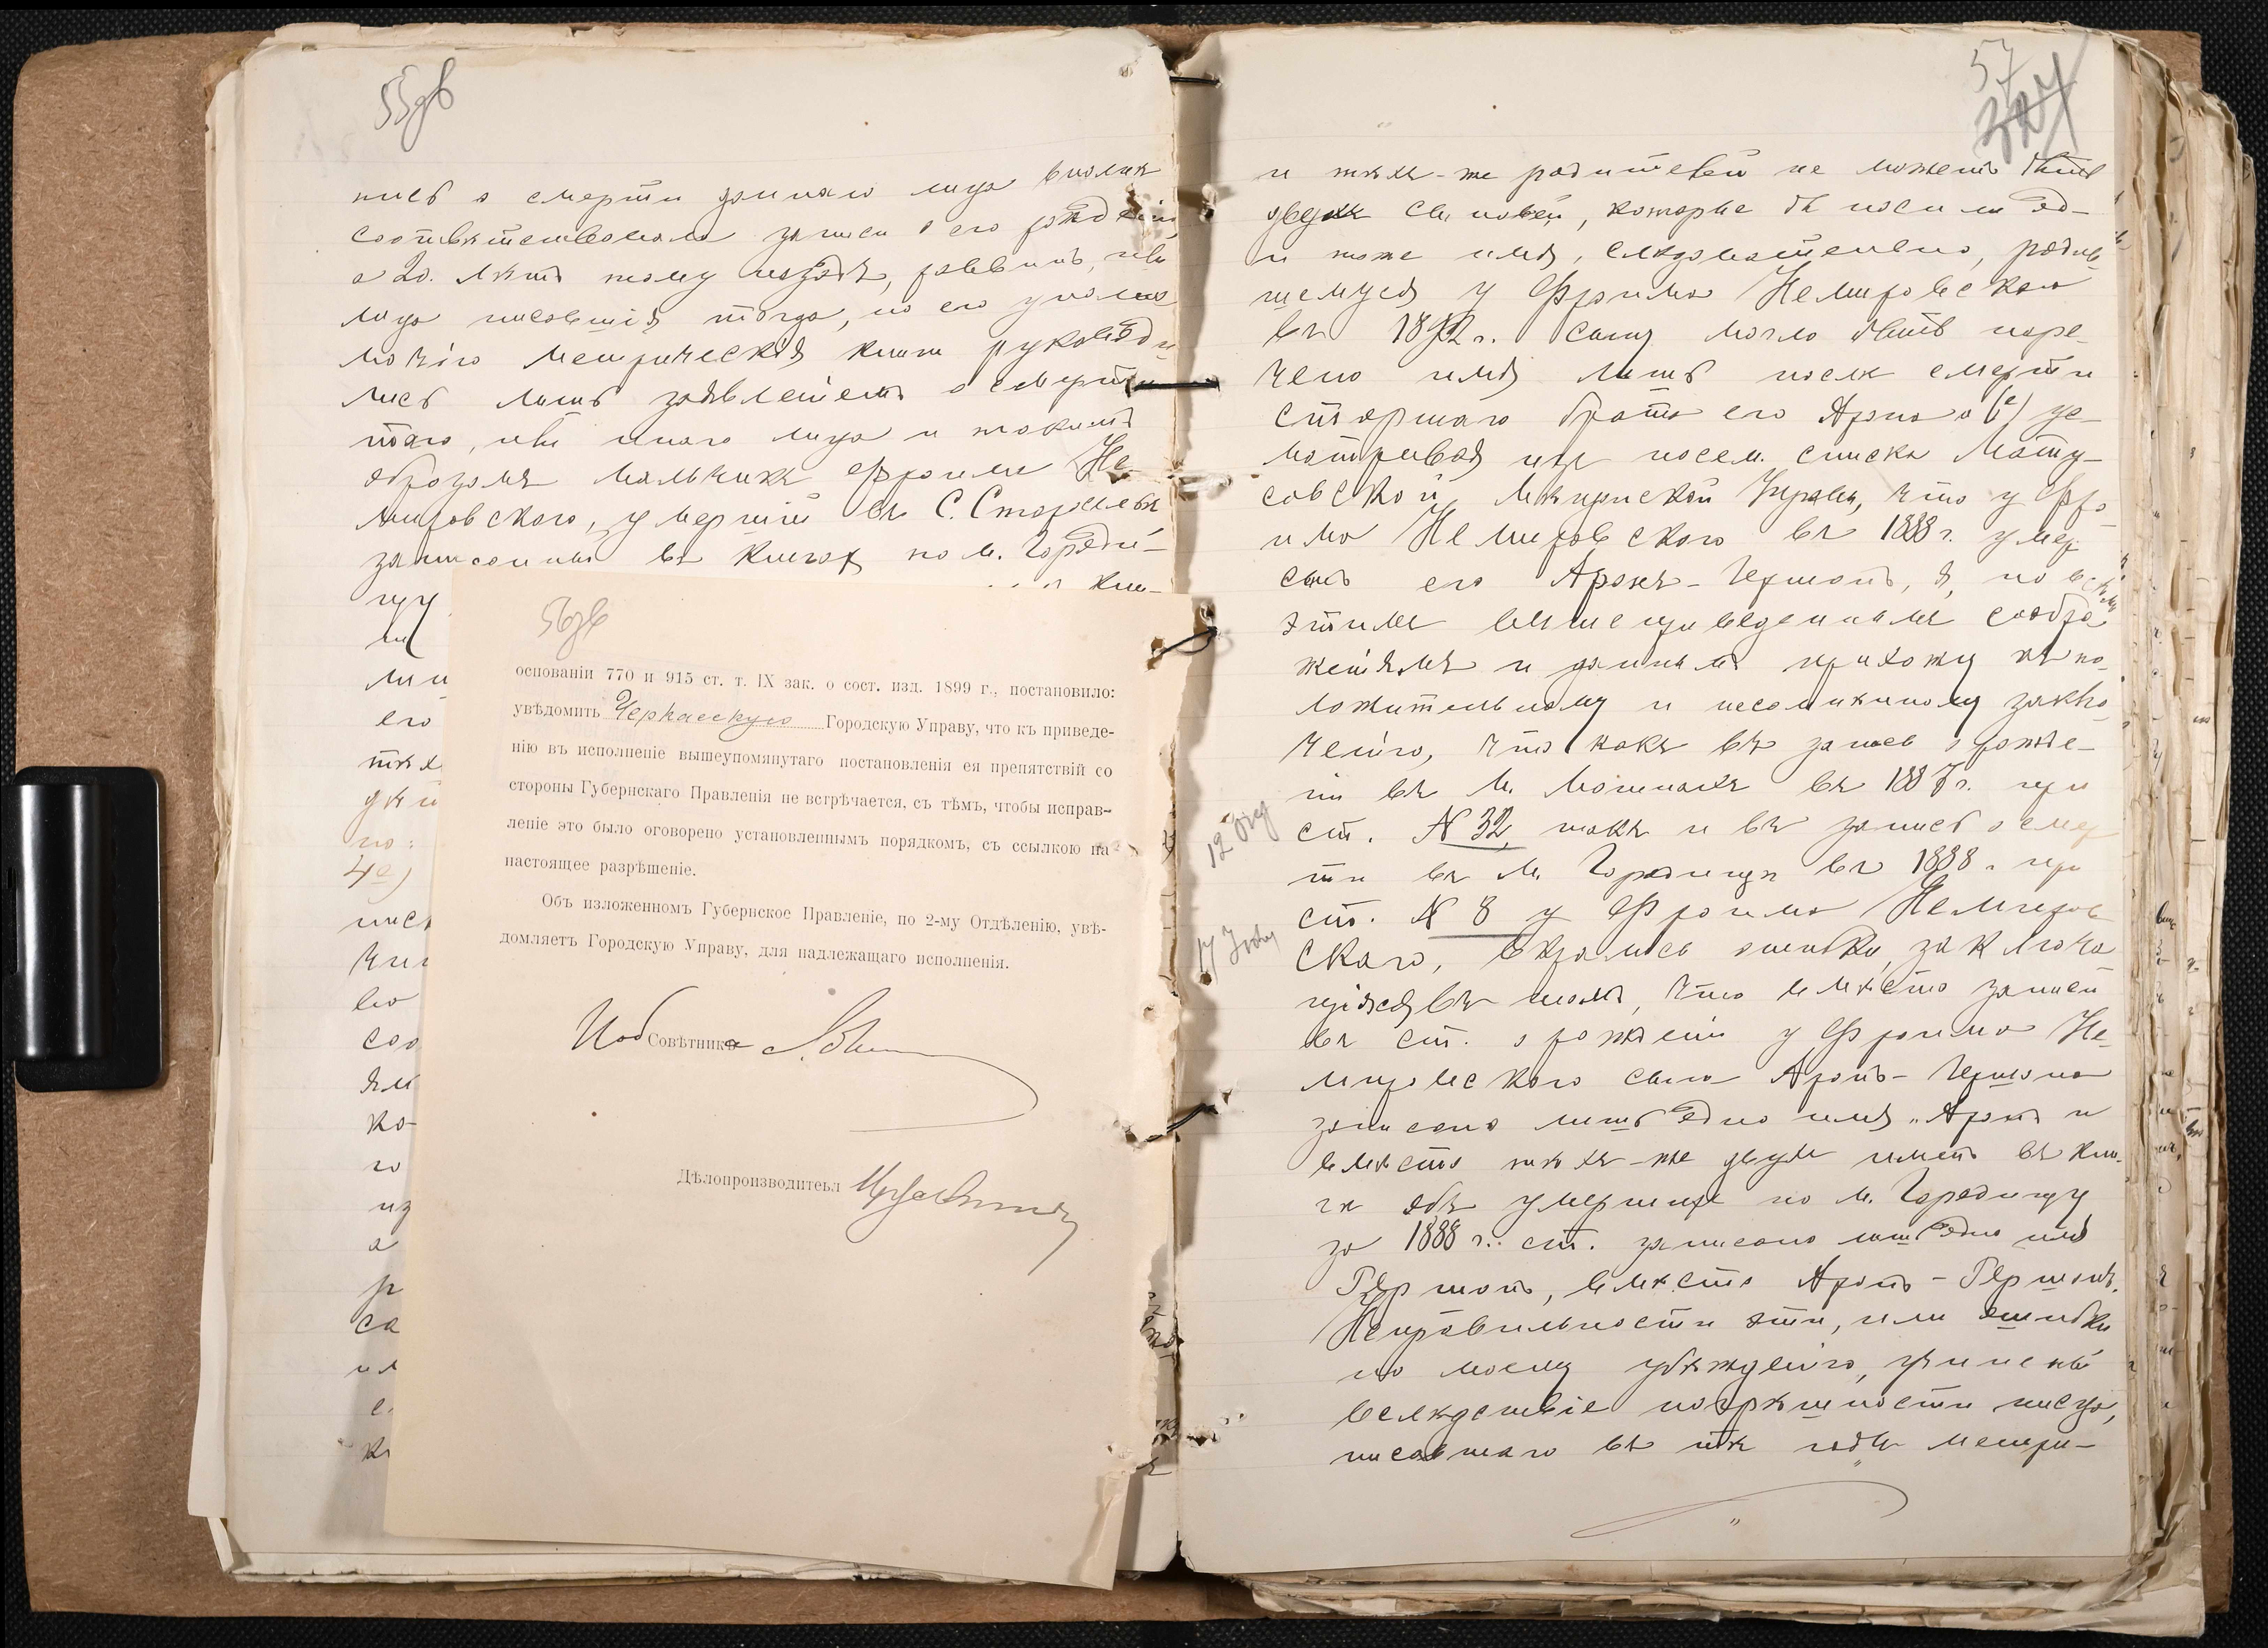 55об
пись о смерти даннаго лица вполнѣ
соотвѣтствовала записи о его рожденіи,
а 20. лѣтъ тому назадъ, раввинъ, или
лица писавшія тогда, по его уполно
мочію метрическія книги руководи
лись лишь заявленіемъ о смерти
того, или иного лица и такимъ
образомъ мальчикъ Фроима Не-
мировскаго, умершій въ С.
записанный въ книгахъ по м. Городи-
щу
кни-
ми
его
тѣх
4е)
пись
во
соо
ям
ко-
го
из
а
са
56об
основаніи 770 и 915 ст. т. IX зак. о сост. изд. 1899 г., постановило:
увѣдомить Черкасскую Городскую Управу, что къ приведе-
нію въ исполненіе вышеупомянутаго постановленія ея препятствій со
стороны Губернскаго Правленія не встрѣчается, съ тѣмъ, чтобы исправ-
леніе это было оговорено установленнымъ порядкомъ, съ ссылкою на
настоящее разрѣшеніе.
Объ изложенномъ Губернское Правленіе, по 2-му Отдѣленію, увѣ-
домляетъ Городскую Управу, для надлежащаго исполненія.
Совѣтника
Дѣлопроизводитель
57
327
и тѣхъ-же родителей не можетъ быть
двухъ сыновей, которые бы носили од-
и тоже имя, следовательно, родив
шемуся у Фроима Немировскаго
въ 1892 г. сыну могло быть наре-
чено имя лишь послѣ смерти
старшаго брата его Арона (е) ус-
матривая изъ посем. списка Мату-
совской, Мѣщанской Управы, что у Фро
има Немировскаго въ 1888 г. умер
сынъ его Аронъ-Гершонъ, я, по всѣмъ
этимъ вышеприведеннымъ сообра
женіямъ и даннымъ прихожу къ по-
ложительному и несомнѣнному заклю
ченію, что какъ въ записи о рожде-
ніи въ м. Мошнахъ въ 1887 г. при
12 Окт
ст. N 32, такъ и въ записи о смер
ти въ м. Городищѣ въ 1888 г. при
17
ст. N 8 у Фроима Немиров
скаго, вкрались ошибки, заключа
щіяся въ томъ, что вмѣсто записи
въ ст. о рожденіи у Фроима Не-
мировскаго сына Аронъ-Гершона
записано лишь одно имя „Аронъ и
вмѣсто тѣхъ-же двухъ именъ въ кни-
гѣ объ умершихъ по м. Городищу
за 1888 г.: ст. записано лишь одно имя
Гершонъ, вмѣсто Аронъ-Гершонъ.
Неправильности эти, или ошибки
по моему убѣжденію, учинены
вслѣдствіе погрѣшности писца,
писавшаго въ тѣ годы метри-